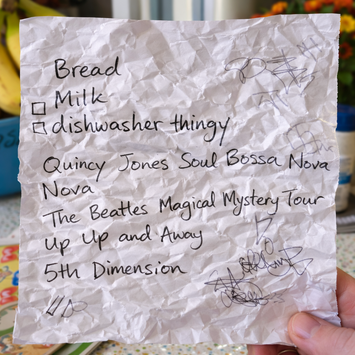 Bread
Milk
dishwasher thingy
Quincy Jones Soul Bossa Nova
Nova
The Beatles Magical Mystery Tour
Up Up and Away
5th Dimension